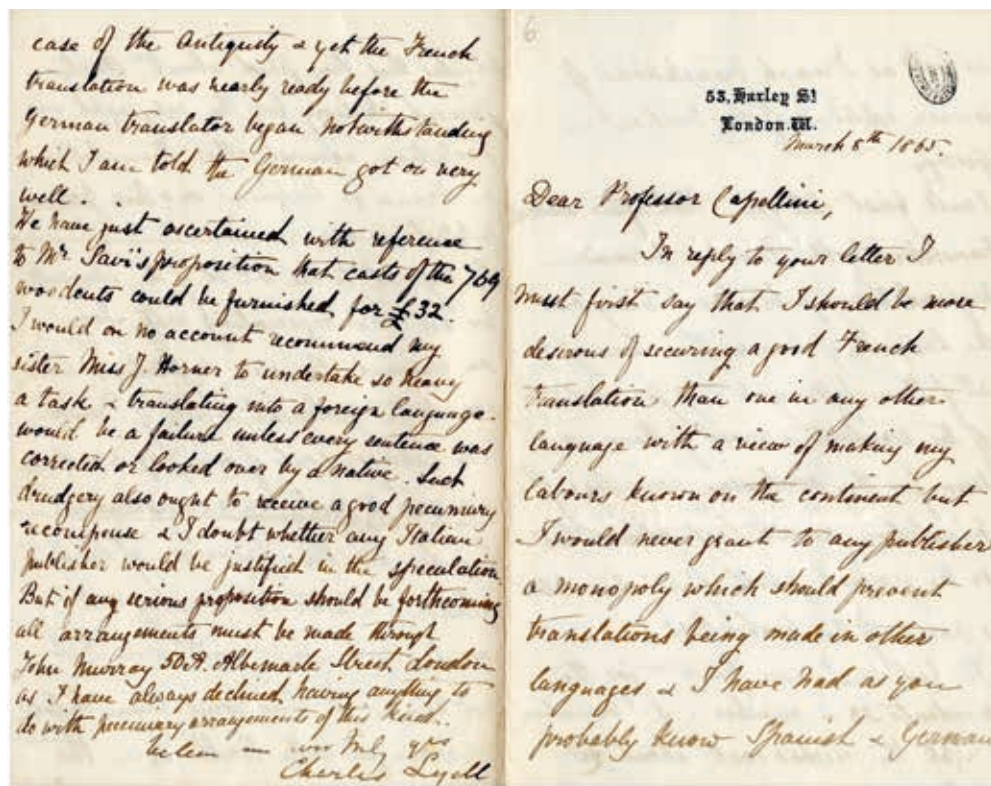 case of the Antiquity & yet the French
translation was nearly ready before the
German translator began notwithstanding
which I am told the German got on very
well.
We have just ascertained with reference
to Mr Savi's proposition that casts of the 769
woodcuts could be furnished for £32.
I would on no account recommend my
sister Miss J. Horner to undertake so heavy
a task & translating into a foreign language
would be a failure unless every sentence was
corrected or looked over by a native. Such
drudgery also ought to receive a good pecuniary
recompense & I doubt whether any Italian
publisher would be justified in the speculation
But if any serious proposition should be forthcoming
all arrangements must be made through
John Murray 50A. Albemarle Street London
as I have always declined having anything to
do with pecuniary arrangements of this kind.
truly yrs
Charles Lyell
6
53, Harley St
London. W.
March 8th 1865.
Dear Professor Capellini,
In reply to your letter I
must first say that I should be more
desirous of securing a good French
translation than one in any other
language with a view of making my
labours known on the continent but
I would never grant to any publisher
a monopoly which should prevent
translations being made in other
languages & I have had as you
probably know Spanish & German